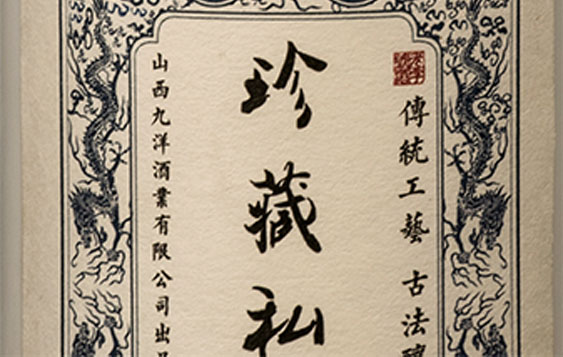 傳統工藝 古法釀
珍藏私
山西九洋酒業有限公司出品